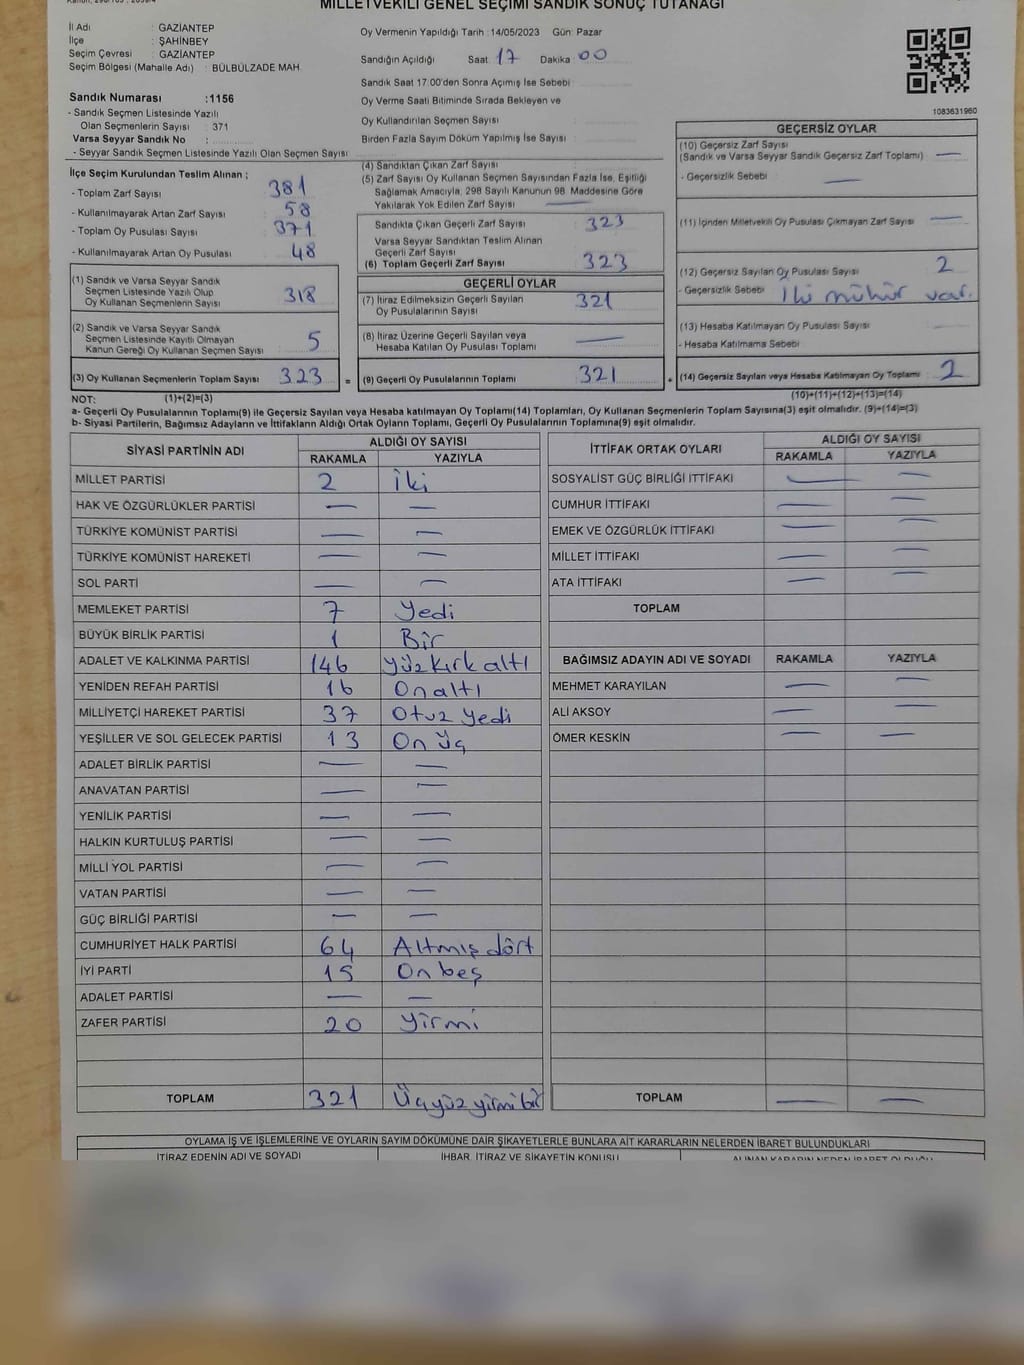 MİLLETVEKİLİ GENEL SEÇİMİ SANDIK SONUÇ TUTANAĞI
İl Adı : GAZİANTEP
İlçe : ŞAHİNBEY
Seçim Çevresi : GAZİANTEP
Seçim Bölgesi (Mahalle Adı) : BÜLBÜLZADE MAH.
Sandık Numarası :1156
- Sandık Seçmen Listesinde Yazılı
Olan Seçmenlerin Sayısı : 371
Varsa Seyyar Sandık No :
- Seyyar Sandık Seçmen Listesinde Yazılı Olan Seçmen Sayısı:
Oy Vermenin Yapıldığı Tarih :14/05/2023 Gün: Pazar
Sandığın Açıldığı Saat 17 Dakika 00
Sandık Saat 17:00'den Sonra Açımış İse Sebebi
Oy Verme Saati Bitiminde Sırada Bekleyen ve
Oy Kullandırılan Seçmen Sayısı :
Birden Fazla Sayım Döküm Yapılmış İse Sayısı :
1083631960
İlçe Seçim Kurulundan Teslim Alınan ;
- Toplam Zarf Sayısı : 381
- Kullanılmayarak Artan Zarf Sayısı : 58
- Toplam Oy Pusulası Sayısı : 371
- Kullanılmayarak Artan Oy Pusulası : 48
(1) Sandık ve Varsa Seyyar Sandık
Seçmen Listesinde Yazılı Olup
Oy Kullanan Seçmenlerin Sayısı : 318
(2) Sandık ve Varsa Seyyar Sandık
Seçmen Listesinde Kayıtlı Olmayan
Kanun Gereği Oy Kullanan Seçmen Sayısı : 5
(3) Oy Kullanan Seçmenlerin Toplam Sayısı : 323 =
(4) Sandıktan Çıkan Zarf Sayısı :
(5) Zarf Sayısı Oy Kullanan Seçmen Sayısından Fazla İse, Eşitliği
Sağlamak Amacıyla, 298 Sayılı Kanunun 98. Maddesine Göre
Yakılarak Yok Edilen Zarf Sayısı : —
Sandıkta Çıkan Geçerli Zarf Sayısı : 323
Varsa Seyyar Sandıktan Teslim Alınan
Geçerli Zarf Sayısı :
(6) Toplam Geçerli Zarf Sayısı : 323
GEÇERLİ OYLAR
(7) İtiraz Edilmeksizin Geçerli Sayılan : 321
Oy Pusulalarının Sayısı
(8) İtiraz Üzerine Geçerli Sayılan veya : —
Hesaba Katılan Oy Pusulası Toplamı
(9) Geçerli Oy Pusulalarının Toplamı : 321 +
GEÇERSİZ OYLAR
(10) Geçersiz Zarf Sayısı
(Sandık ve Varsa Seyyar Sandık Geçersiz Zarf Toplamı) : —
- Geçersizlik Sebebi : —
(11) İçinden Milletvekili Oy Pusulası Çıkmayan Zarf Sayısı : —
(12) Geçersiz Sayılan Oy Pusulası Sayısı : 2
- Geçersizlik Sebebi : İki mühür var.
(13) Hesaba Katılmayan Oy Pusulası Sayısı :
- Hesaba Katılmama Sebebi :
(14) Geçersiz Sayılan veya Hesaba Katılmayan Oy Toplamı : 2
NOT: (1)+(2)=(3) (10)+(11)+(12)+(13)=(14)
a- Geçerli Oy Pusulalarının Toplamı(9) ile Geçersiz Sayılan veya Hesaba katılmayan Oy Toplamı(14) Toplamları, Oy Kullanan Seçmenlerin Toplam Sayısına(3) eşit olmalıdır. (9)+(14)=(3)
b- Siyasi Partilerin, Bağımsız Adayların ve İttifakların Aldığı Ortak Oyların Toplamı, Geçerli Oy Pusulalarının Toplamına(9) eşit olmalıdır.
SİYASİ PARTİNİN ADI ALDIĞI OY SAYISI
RAKAMLA YAZIYLA
MİLLET PARTİSİ 2 İki
HAK VE ÖZGÜRLÜKLER PARTİSİ — —
TÜRKİYE KOMÜNİST PARTİSİ — —
TÜRKİYE KOMÜNİST HAREKETİ — —
SOL PARTİ — —
MEMLEKET PARTİSİ 7 Yedi
BÜYÜK BİRLİK PARTİSİ 1 Bir
ADALET VE KALKINMA PARTİSİ 146 Yüz kırk altı
YENİDEN REFAH PARTİSİ 16 On altı
MİLLİYETÇİ HAREKET PARTİSİ 37 Otuz yedi
YEŞİLLER VE SOL GELECEK PARTİSİ 13 On üç
ADALET BİRLİK PARTİSİ — —
ANAVATAN PARTİSİ — —
YENİLİK PARTİSİ — —
HALKIN KURTULUŞ PARTİSİ — —
MİLLİ YOL PARTİSİ — —
VATAN PARTİSİ — —
GÜÇ BİRLİĞİ PARTİSİ — —
CUMHURİYET HALK PARTİSİ 64 Altmış dört
İYİ PARTİ 15 On beş
ADALET PARTİSİ — —
ZAFER PARTİSİ 20 Yirmi
TOPLAM 321 Üçyüz yirmi bir
İTTİFAK ORTAK OYLARI ALDIĞI OY SAYISI
RAKAMLA YAZIYLA
SOSYALİST GÜÇ BİRLİĞİ İTTİFAKI — —
CUMHUR İTTİFAKI — —
EMEK VE ÖZGÜRLÜK İTTİFAKI — —
MİLLET İTTİFAKI — —
ATA İTTİFAKI — —
TOPLAM
BAĞIMSIZ ADAYIN ADI VE SOYADI RAKAMLA YAZIYLA
MEHMET KARAYILAN — —
ALİ AKSOY — —
ÖMER KESKİN — —
TOPLAM — —
OYLAMA İŞ VE İŞLEMLERİNE VE OYLARIN SAYIM DÖKÜMÜNE DAİR ŞİKAYETLERLE BUNLARA AİT KARARLARIN NELERDEN İBARET BULUNDUKLARI
İTİRAZ EDENİN ADI VE SOYADI İHBAR, İTİRAZ VE ŞİKAYETİN KONUSU ALINAN KARARIN NEDEN İBARET OLDUĞU